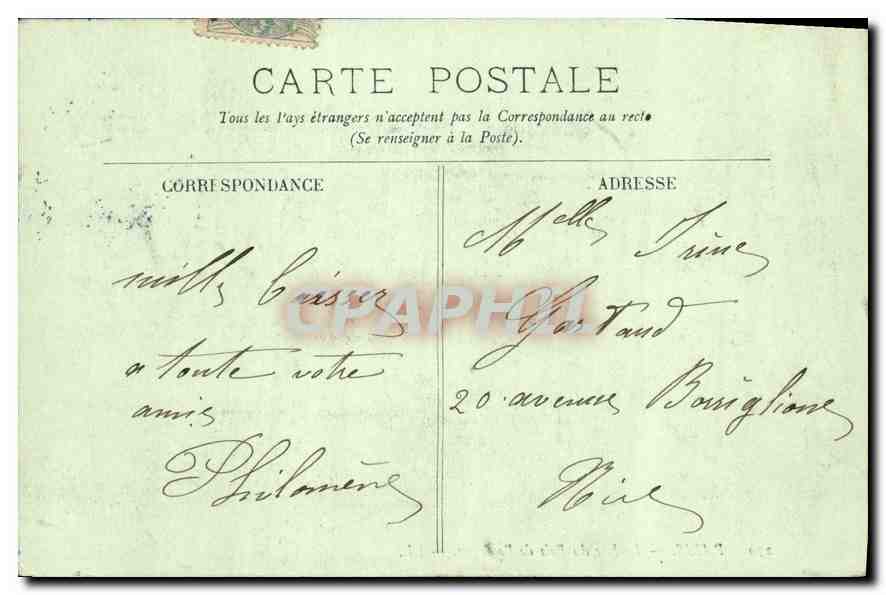 CARTE POSTALE
Tous les Pays étrangers n'acceptent pas la Correspondance au recto
(Se renseigner à la Poste).
CORRESPONDANCE
ADRESSE
mille
a toute votre
amie
Philomène
Melle Irène
Gastaud
20 avenue Borriglione
Nice
CPAPHIL